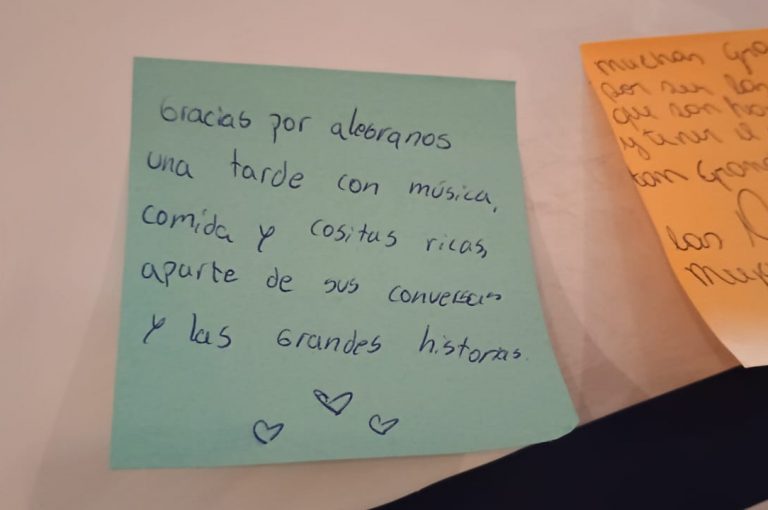 Gracias por alegranos
una tarde con música,
comida y cositas ricas,
aparte de sus
y las grandes historias.
muchas
por ser los
que son
y tener el
tan
los